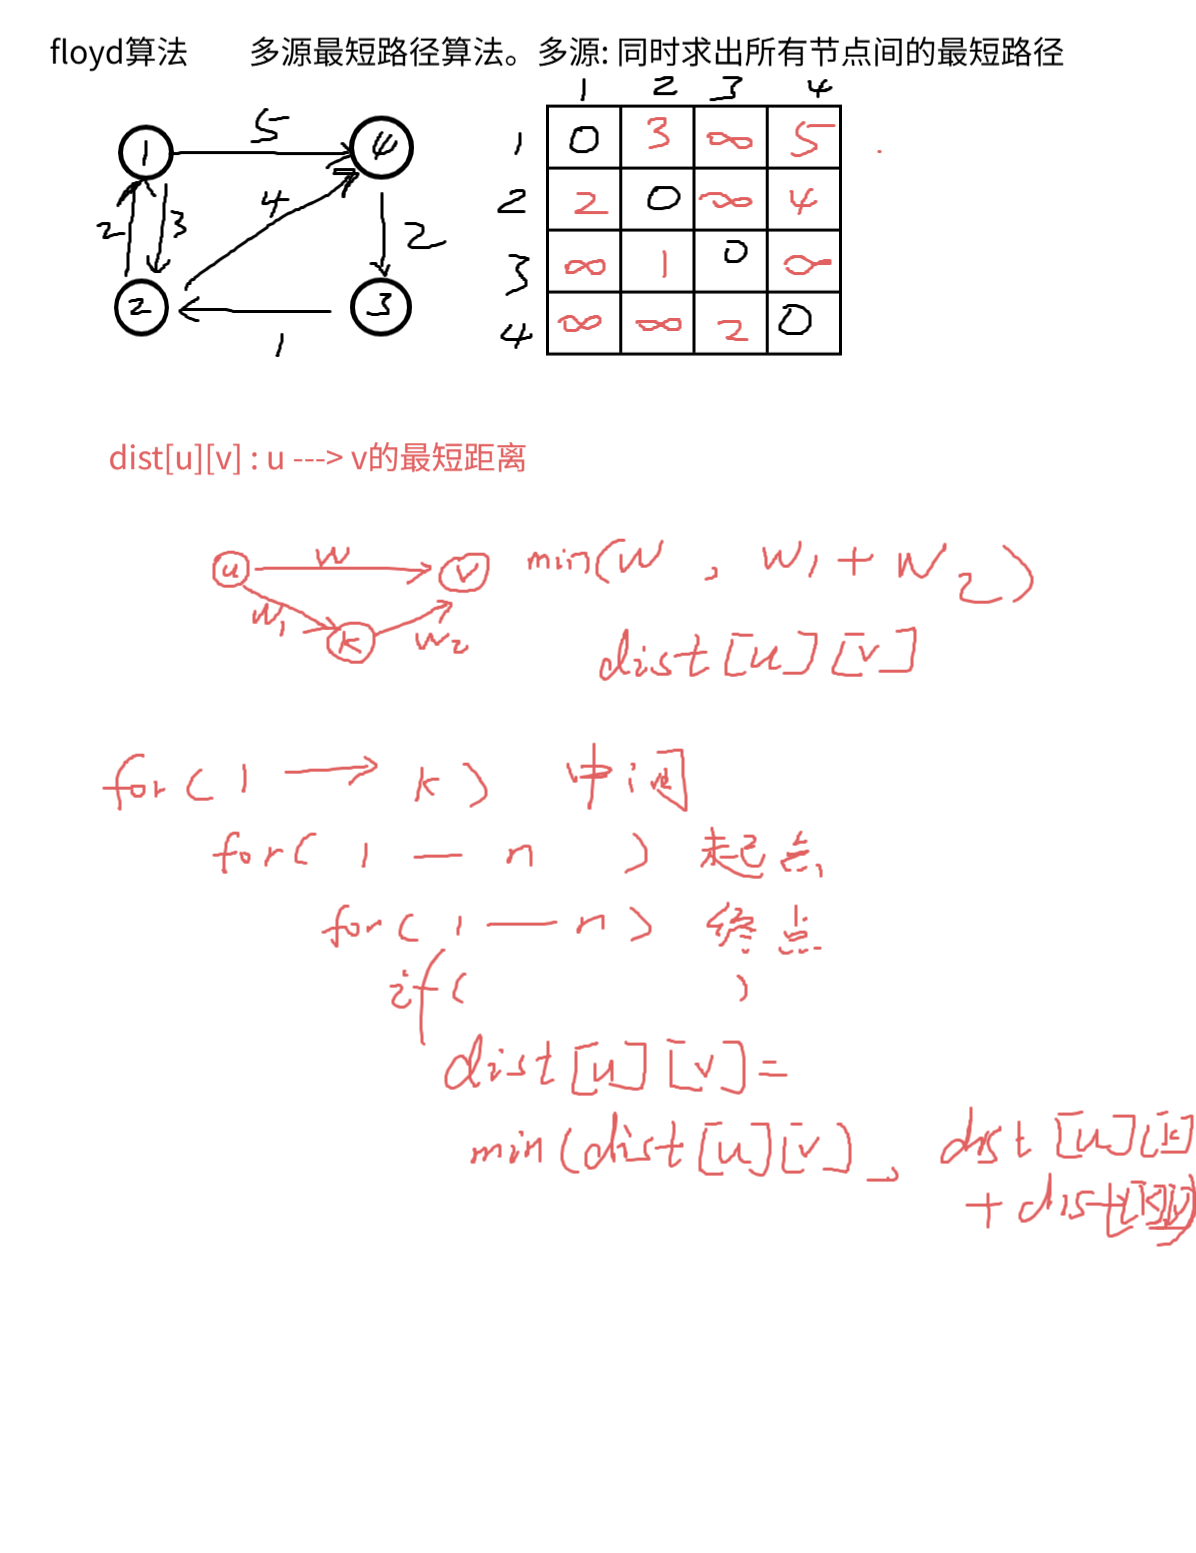 floyd算法 多源最短路径算法。多源: 同时求出所有节点间的最短路径
1 2 3 4
5
1 4
1 0 3 ∞ 5
2 3 4 2
2 2 0 ∞ 4
2 3
3 ∞ 1 0 ∞
1
4 ∞ ∞ 2 0
dist[u][v] : u ---> v的最短距离
u w v min(w , w1 + w2)
w1 k w2
dist[u][v]
for(1 → k) 中间
for( 1 — n ) 起点
for( 1 — n ) 终点
if( )
dist[u][v]=
min(dist[u][v], dist[u][k]
+ dist[k][v])